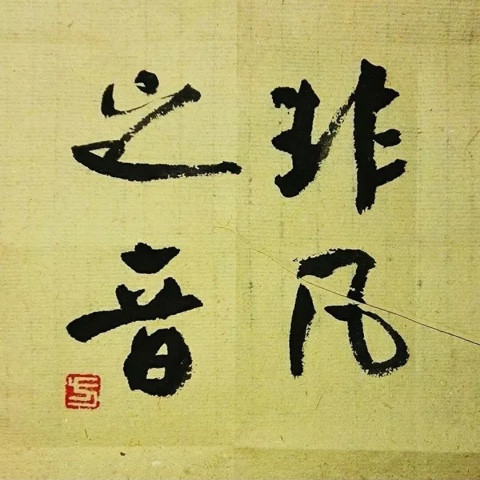 非凡
之音